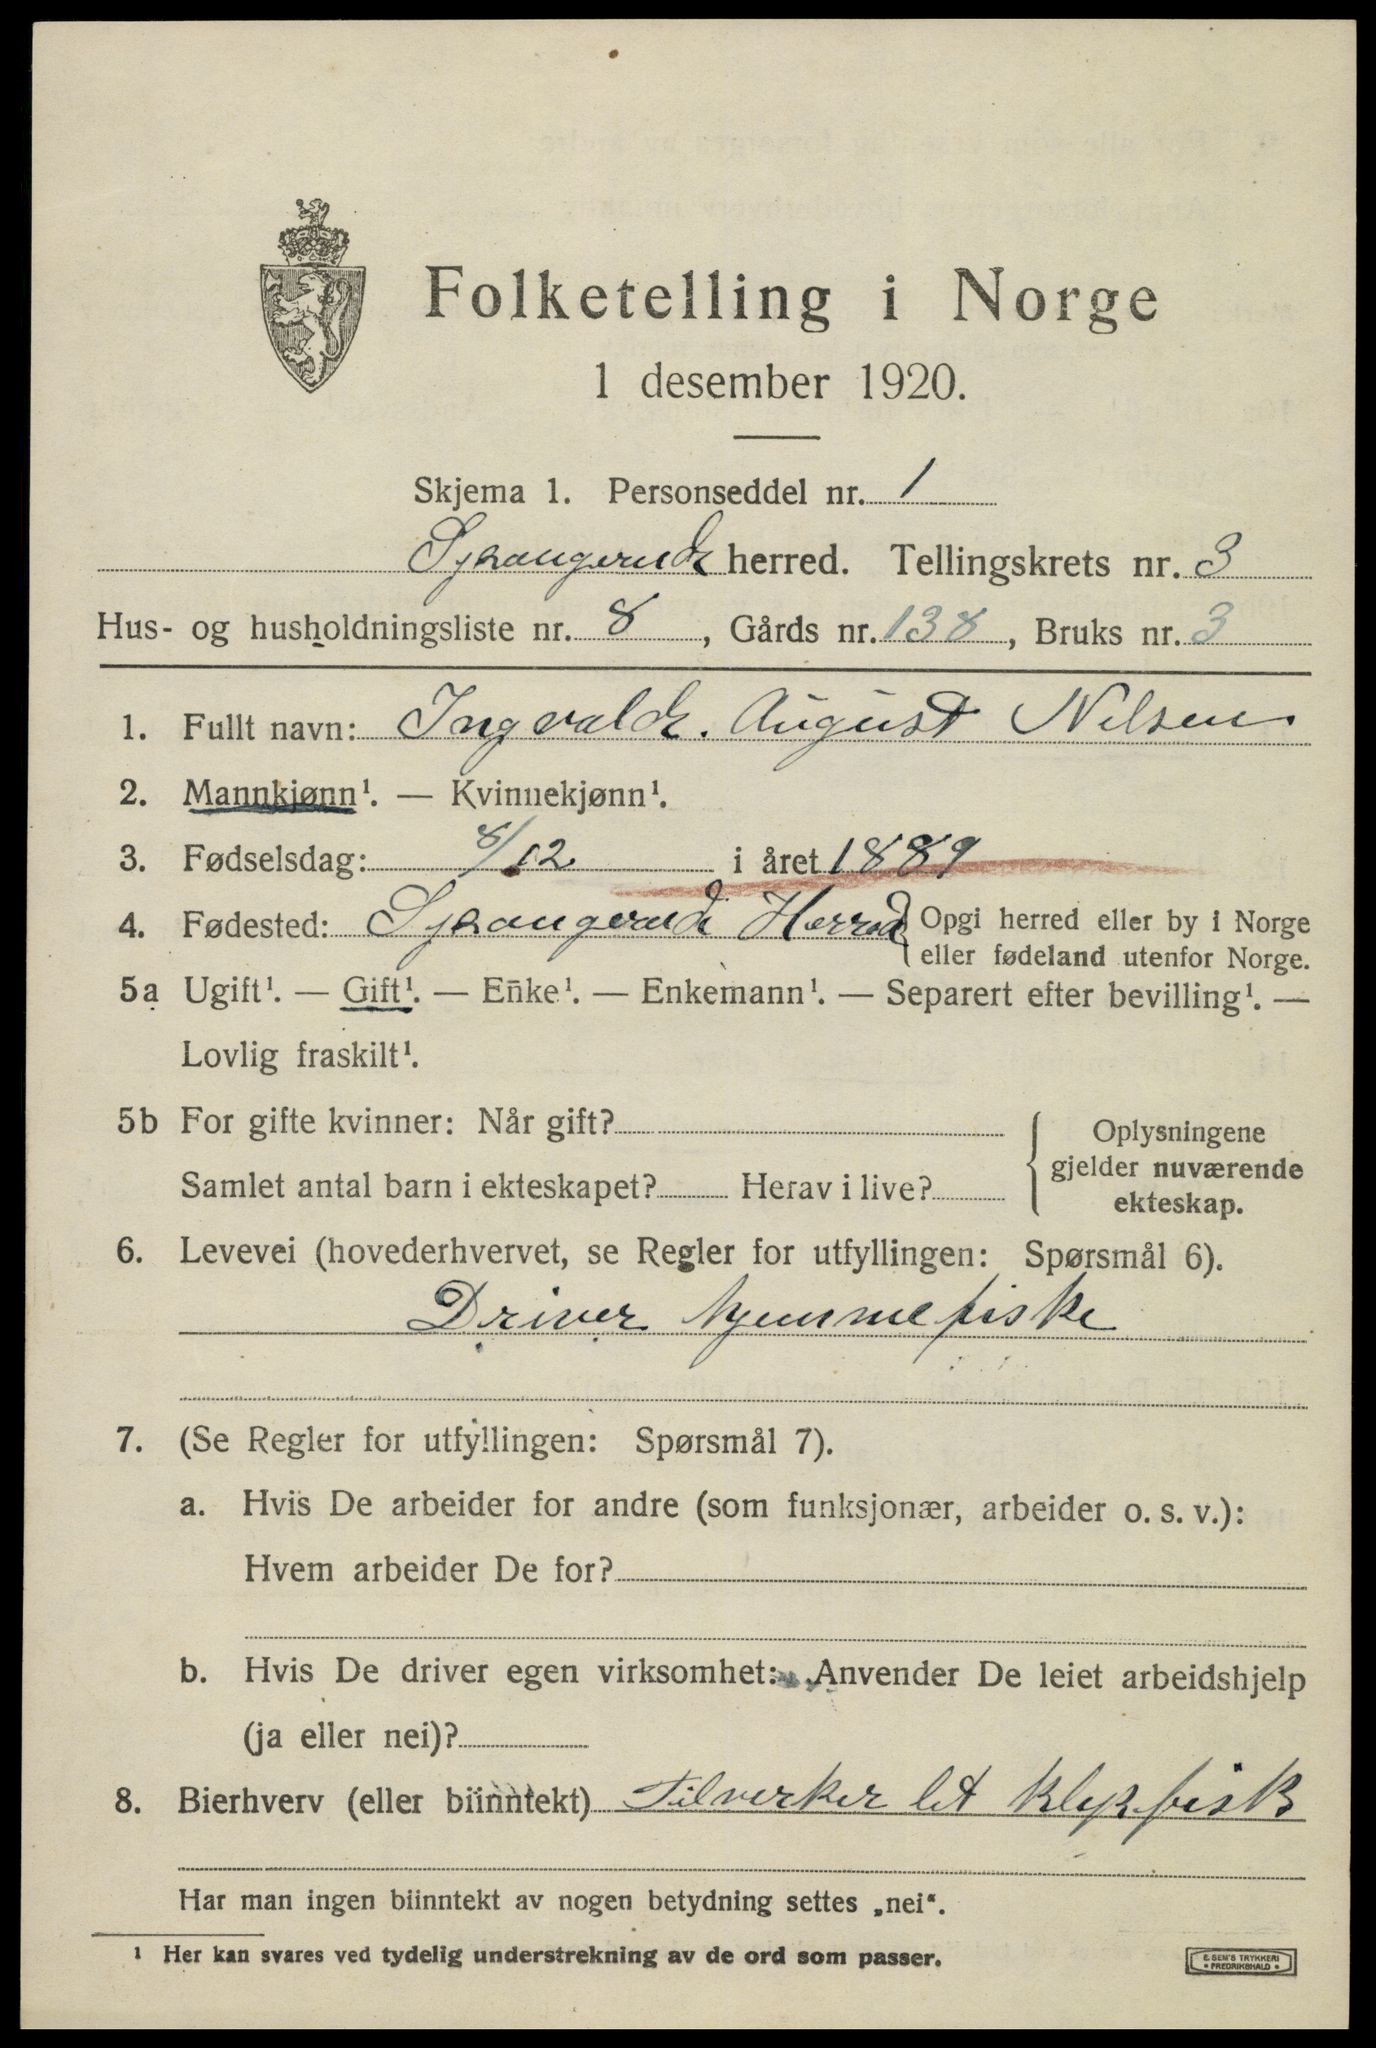 Folketelling i Norge
1 desember 1920.
Skjema 1. Personseddel nr. 1
Sjrangerude herred. Tellingskrets nr. 3
Hus- og husholdningsliste nr. 8, Gårds nr. 138, Bruks nr. 3
1. Fullt navn: Ingvald. August Nilsen
2. Mannkjønn¹. — Kvinnekjønn¹.
3. Fødselsdag: 8/12 i året 1889
4. Fødested: Herred { Opgi herred eller by i Norge
eller fødeland utenfor Norge.
5a Ugift¹. — Gift¹. — Enke¹. — Enkemann¹. — Separert efter bevilling¹. —
Lovlig fraskilt¹.
5b For gifte kvinner: Når gift?
Samlet antal barn i ekteskapet? Herav i live?
{ Oplysningene
gjelder nuværende
ekteskap.
6. Levevei (hovederhvervet, se Regler for utfyllingen: Spørsmål 6).
Driver hjemmefiske
7. (Se Regler for utfyllingen: Spørsmål 7).
a. Hvis De arbeider for andre (som funksjonær, arbeider o. s. v.):
Hvem arbeider De for?
b. Hvis De driver egen virksomhet: Anvender De leiet arbeidshjelp
(ja eller nei)?
8. Bierhverv (eller biinntekt) Tilverker let klipfisk
Har man ingen biinntekt av nogen betydning settes „nei“.
¹ Her kan svares ved tydelig understrekning av de ord som passer.
E. SEM'S TRYKKERI
• FREDRIKSHALD •